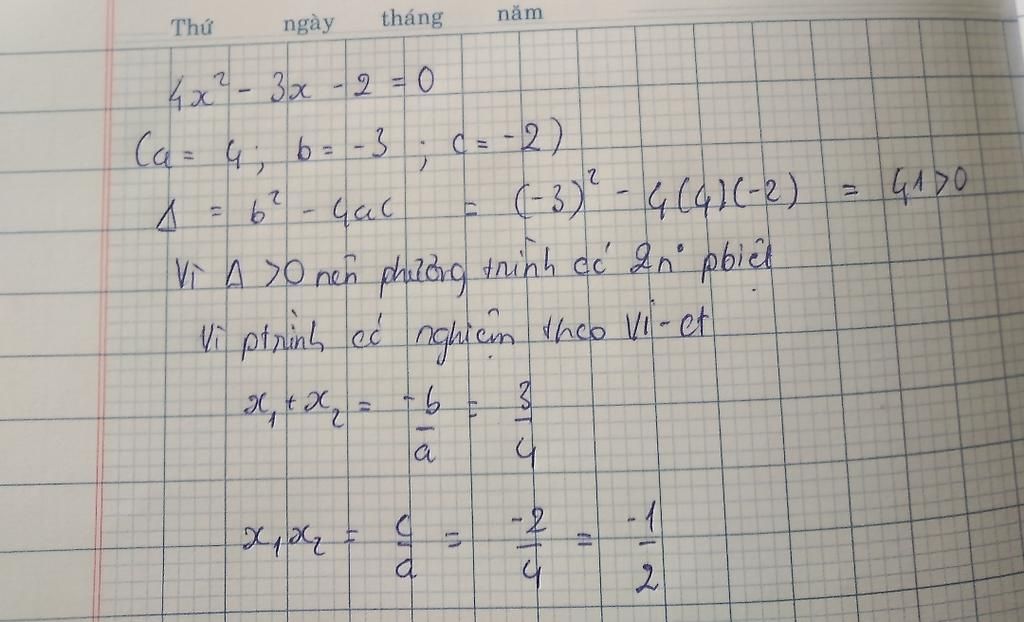 Thứ ngày tháng năm
4x² - 3x - 2 = 0
(a = 4; b = -3; c = -2)
Δ = b² - 4ac = (-3)² - 4(4)(-2) = 41 > 0
Vì Δ > 0 nên phương trình có 2n° pbiệt
Vì ptrình có nghiệm theo Vi-et
x₁ + x₂ = -b/a = 3/4
x₁x₂ = c/a = -2/4 = -1/2